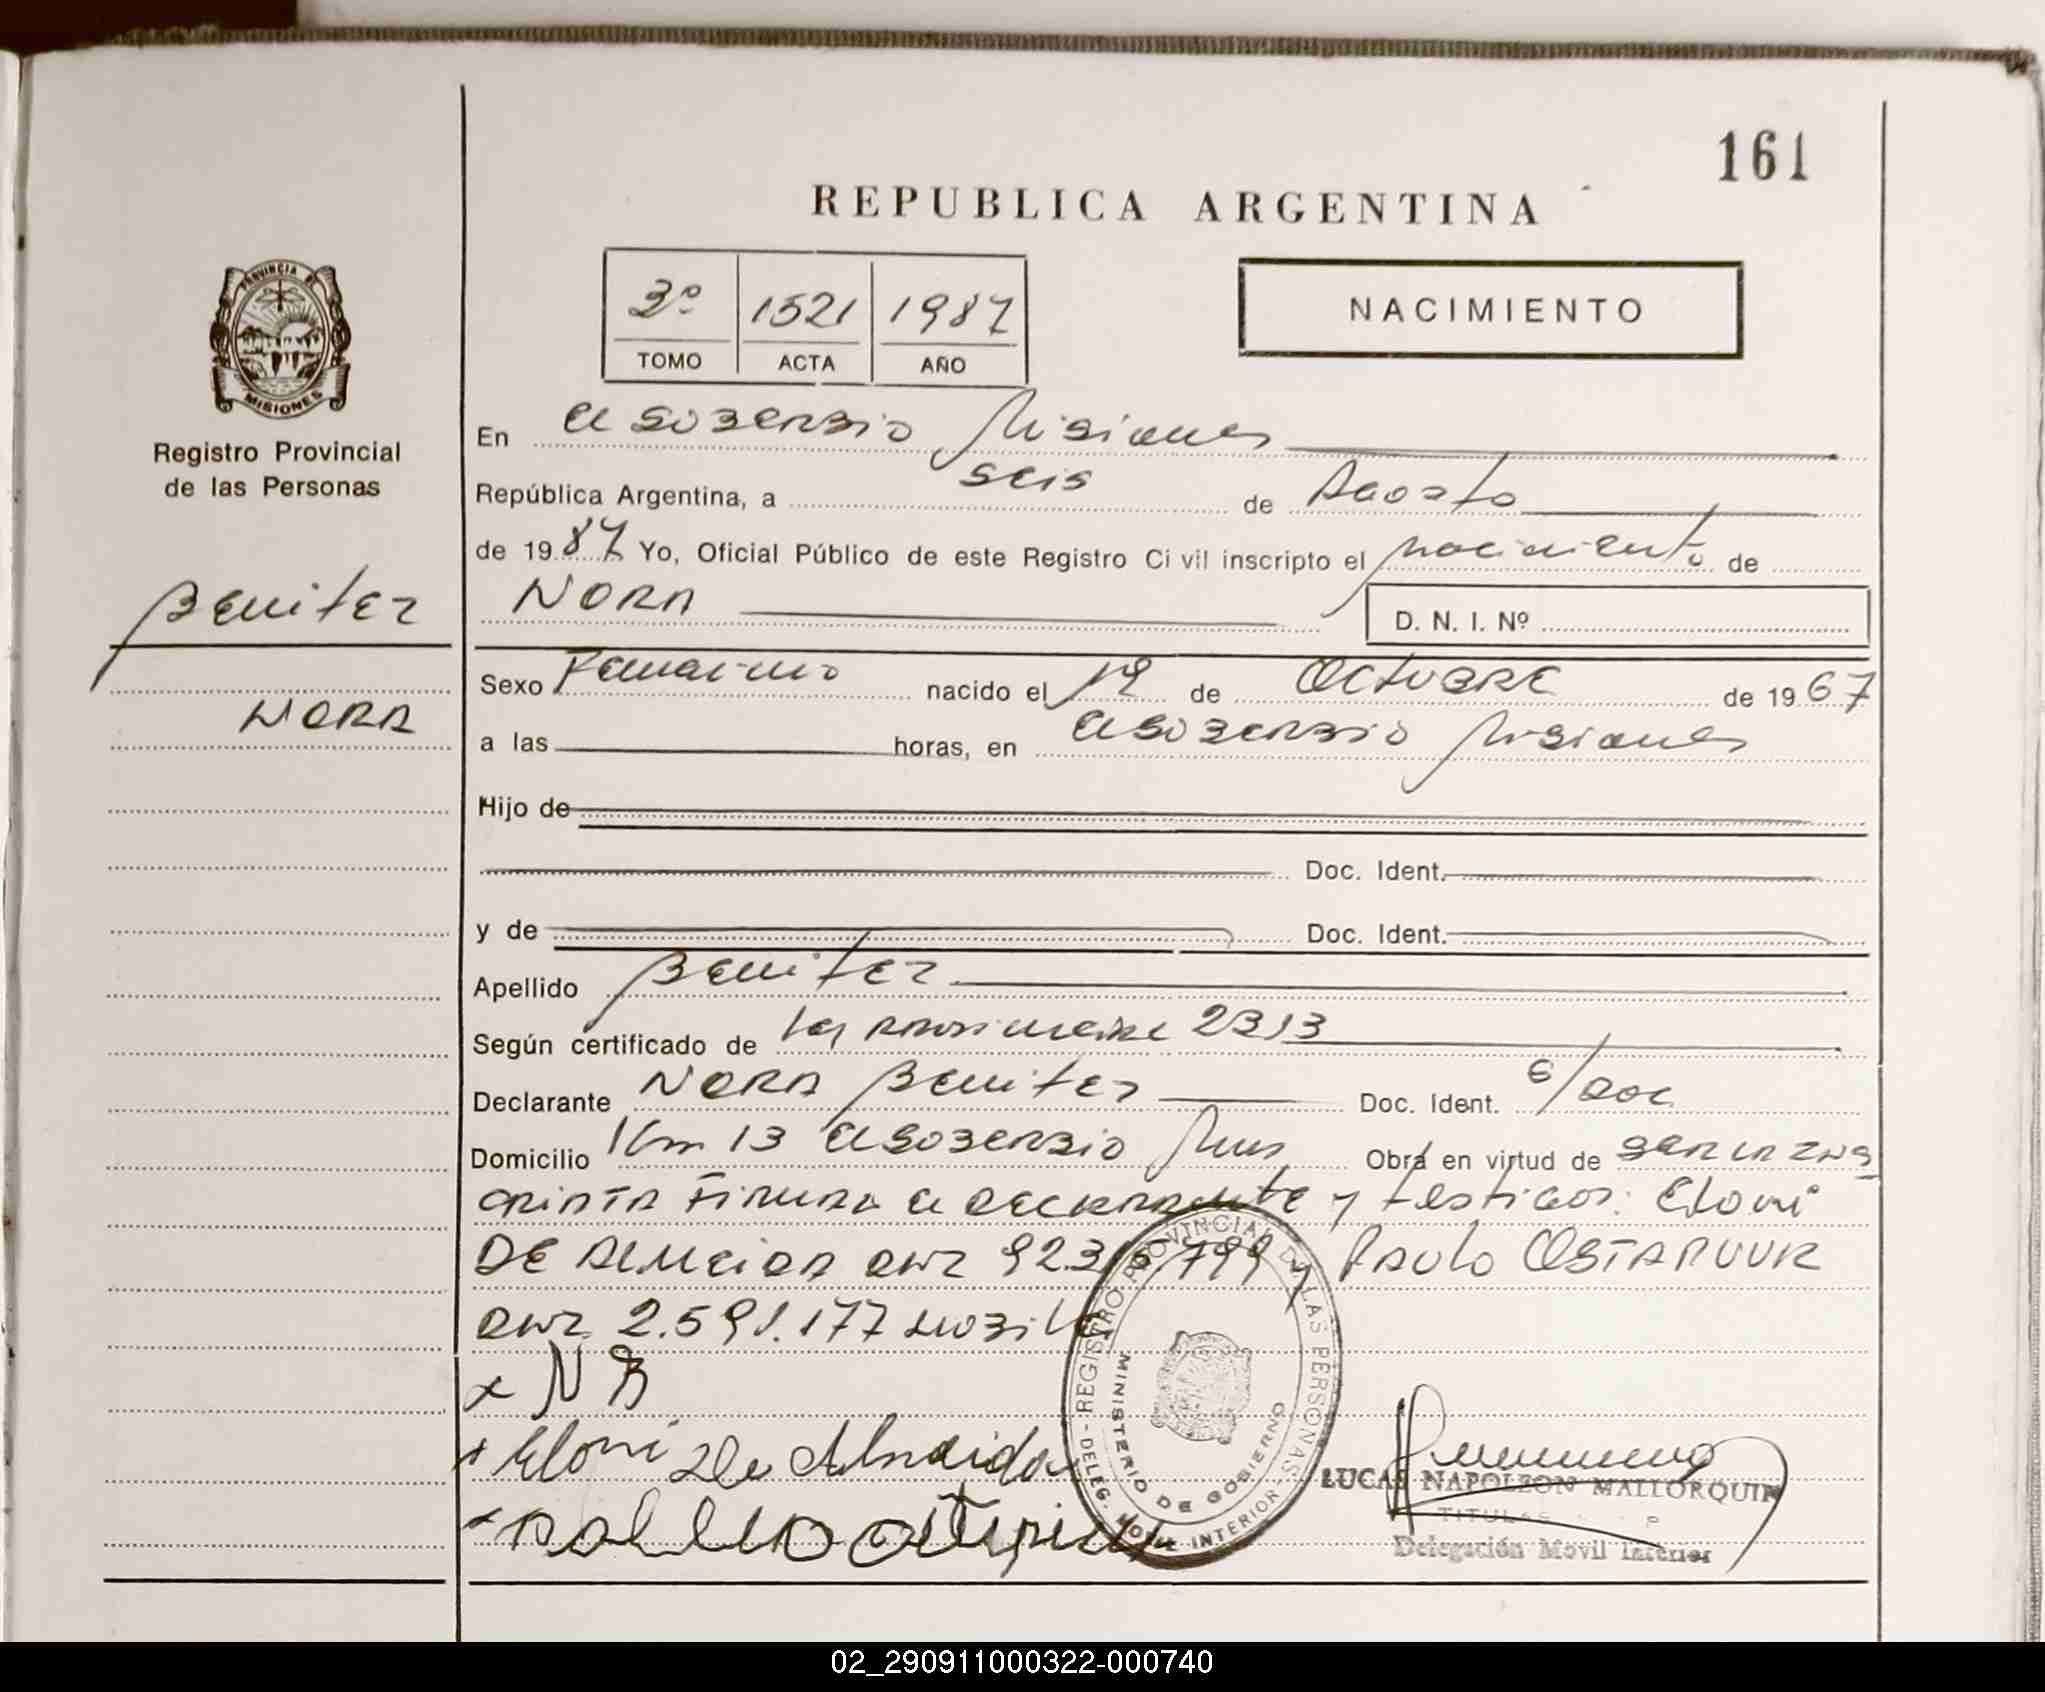 161
REPUBLICA ARGENTINA
3º 1521 1987
TOMO ACTA AÑO
NACIMIENTO
PROVINCIA DE
MISIONES
Registro Provincial
de las Personas
Benitez
NORA
En El Soberbio Misiones
República Argentina, a seis de Agosto
de 1987 Yo, Oficial Público de este Registro Civil inscripto el nacimiento de
NORA D. N. I. Nº
Sexo Femenino nacido el 19 de Octubre de 1967
a las horas, en El Soberbio Misiones
Hijo de
Doc. Ident.
y de Doc. Ident.
Apellido Benitez
Según certificado de Ley Provincial 2313
Declarante NORA Benitez Doc. Ident. S/Doc
Domicilio Km 13 El Soberbio Mnes Obra en virtud de
firma el declarante y testigos: Eloni
DE ALMEIDA DNI 92.315.799 y PAULO
DNI 2.591.177
x N B
x Eloni De Almeida
x
REGISTRO PROVINCIAL DE LAS PERSONAS - DELEG. MOVIL INTERIOR -
MINISTERIO DE GOBIERNO
LUCAS NAPOLEON MALLORQUIN
Delegación Movil Interior
02_290911000322-000740